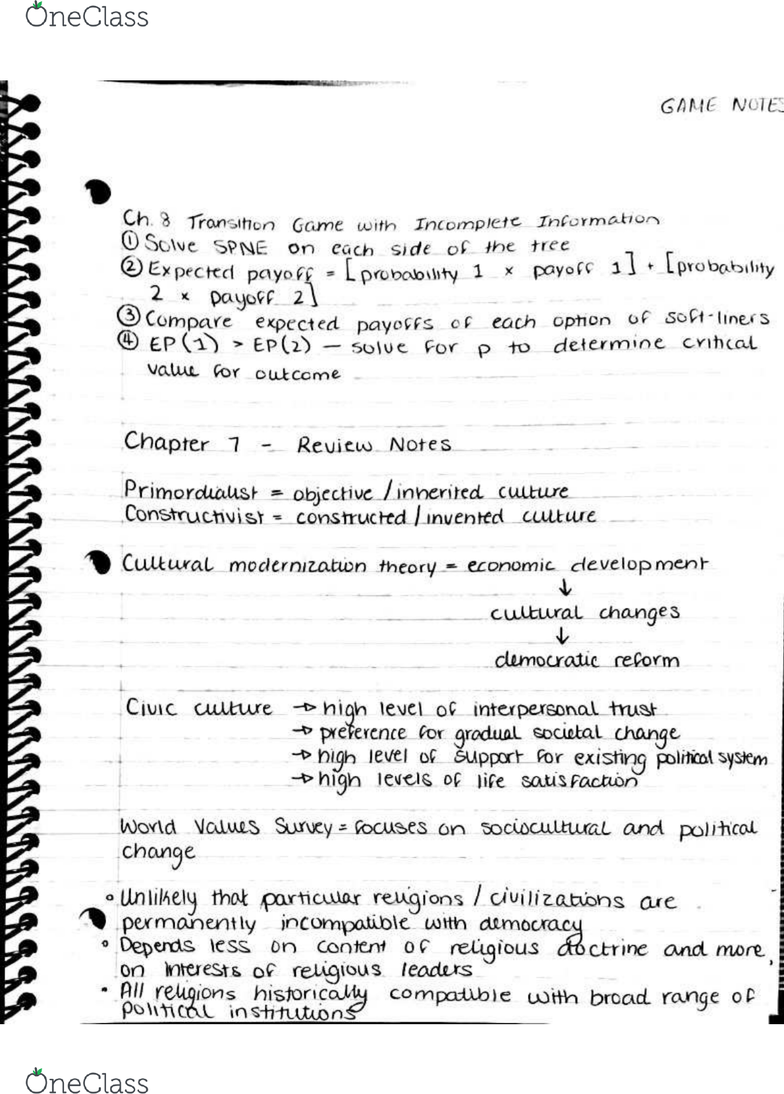 OneClass
GAME NOTES
Ch. 8 Transition Game with Incomplete Information
① Solve SPNE on each side of the tree
② Expected payoff = [probability 1 x payoff 1] + [probability
2 x payoff 2]
③ Compare expected payoffs of each option of soft-liners
④ EP(1) > EP(2) – solve for p to determine critical
value for outcome
Chapter 7 - Review Notes
Primordialist = objective / inherited culture
Constructivist = constructed / invented culture
Cultural modernization theory = economic development
↓
cultural changes
↓
democratic reform
Civic culture → high level of interpersonal trust
→ preference for gradual societal change
→ high level of support for existing political system
→ high levels of life satisfaction
World Values Survey = focuses on sociocultural and political
change
• Unlikely that particular religions / civilizations are
permanently incompatible with democracy
• Depends less on content of religious doctrine and more
on interests of religious leaders
• All religions historically compatible with broad range of
political institutions
OneClass